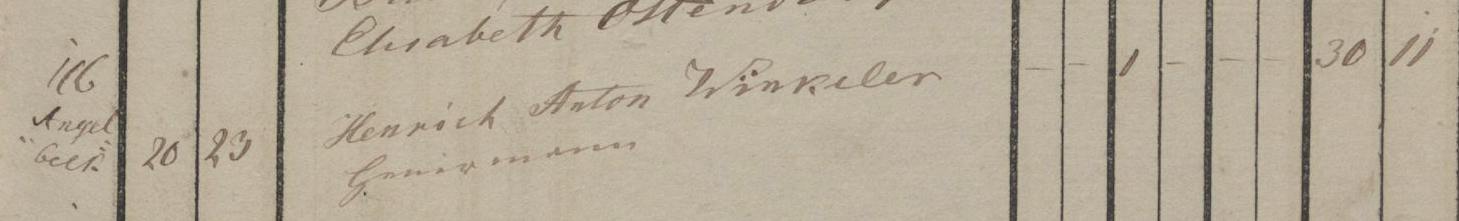 Elisabeth
116
Angel
beck
20 23
Henrich Anton Winkeler
Heuermann
— — 1 — — — 30 11